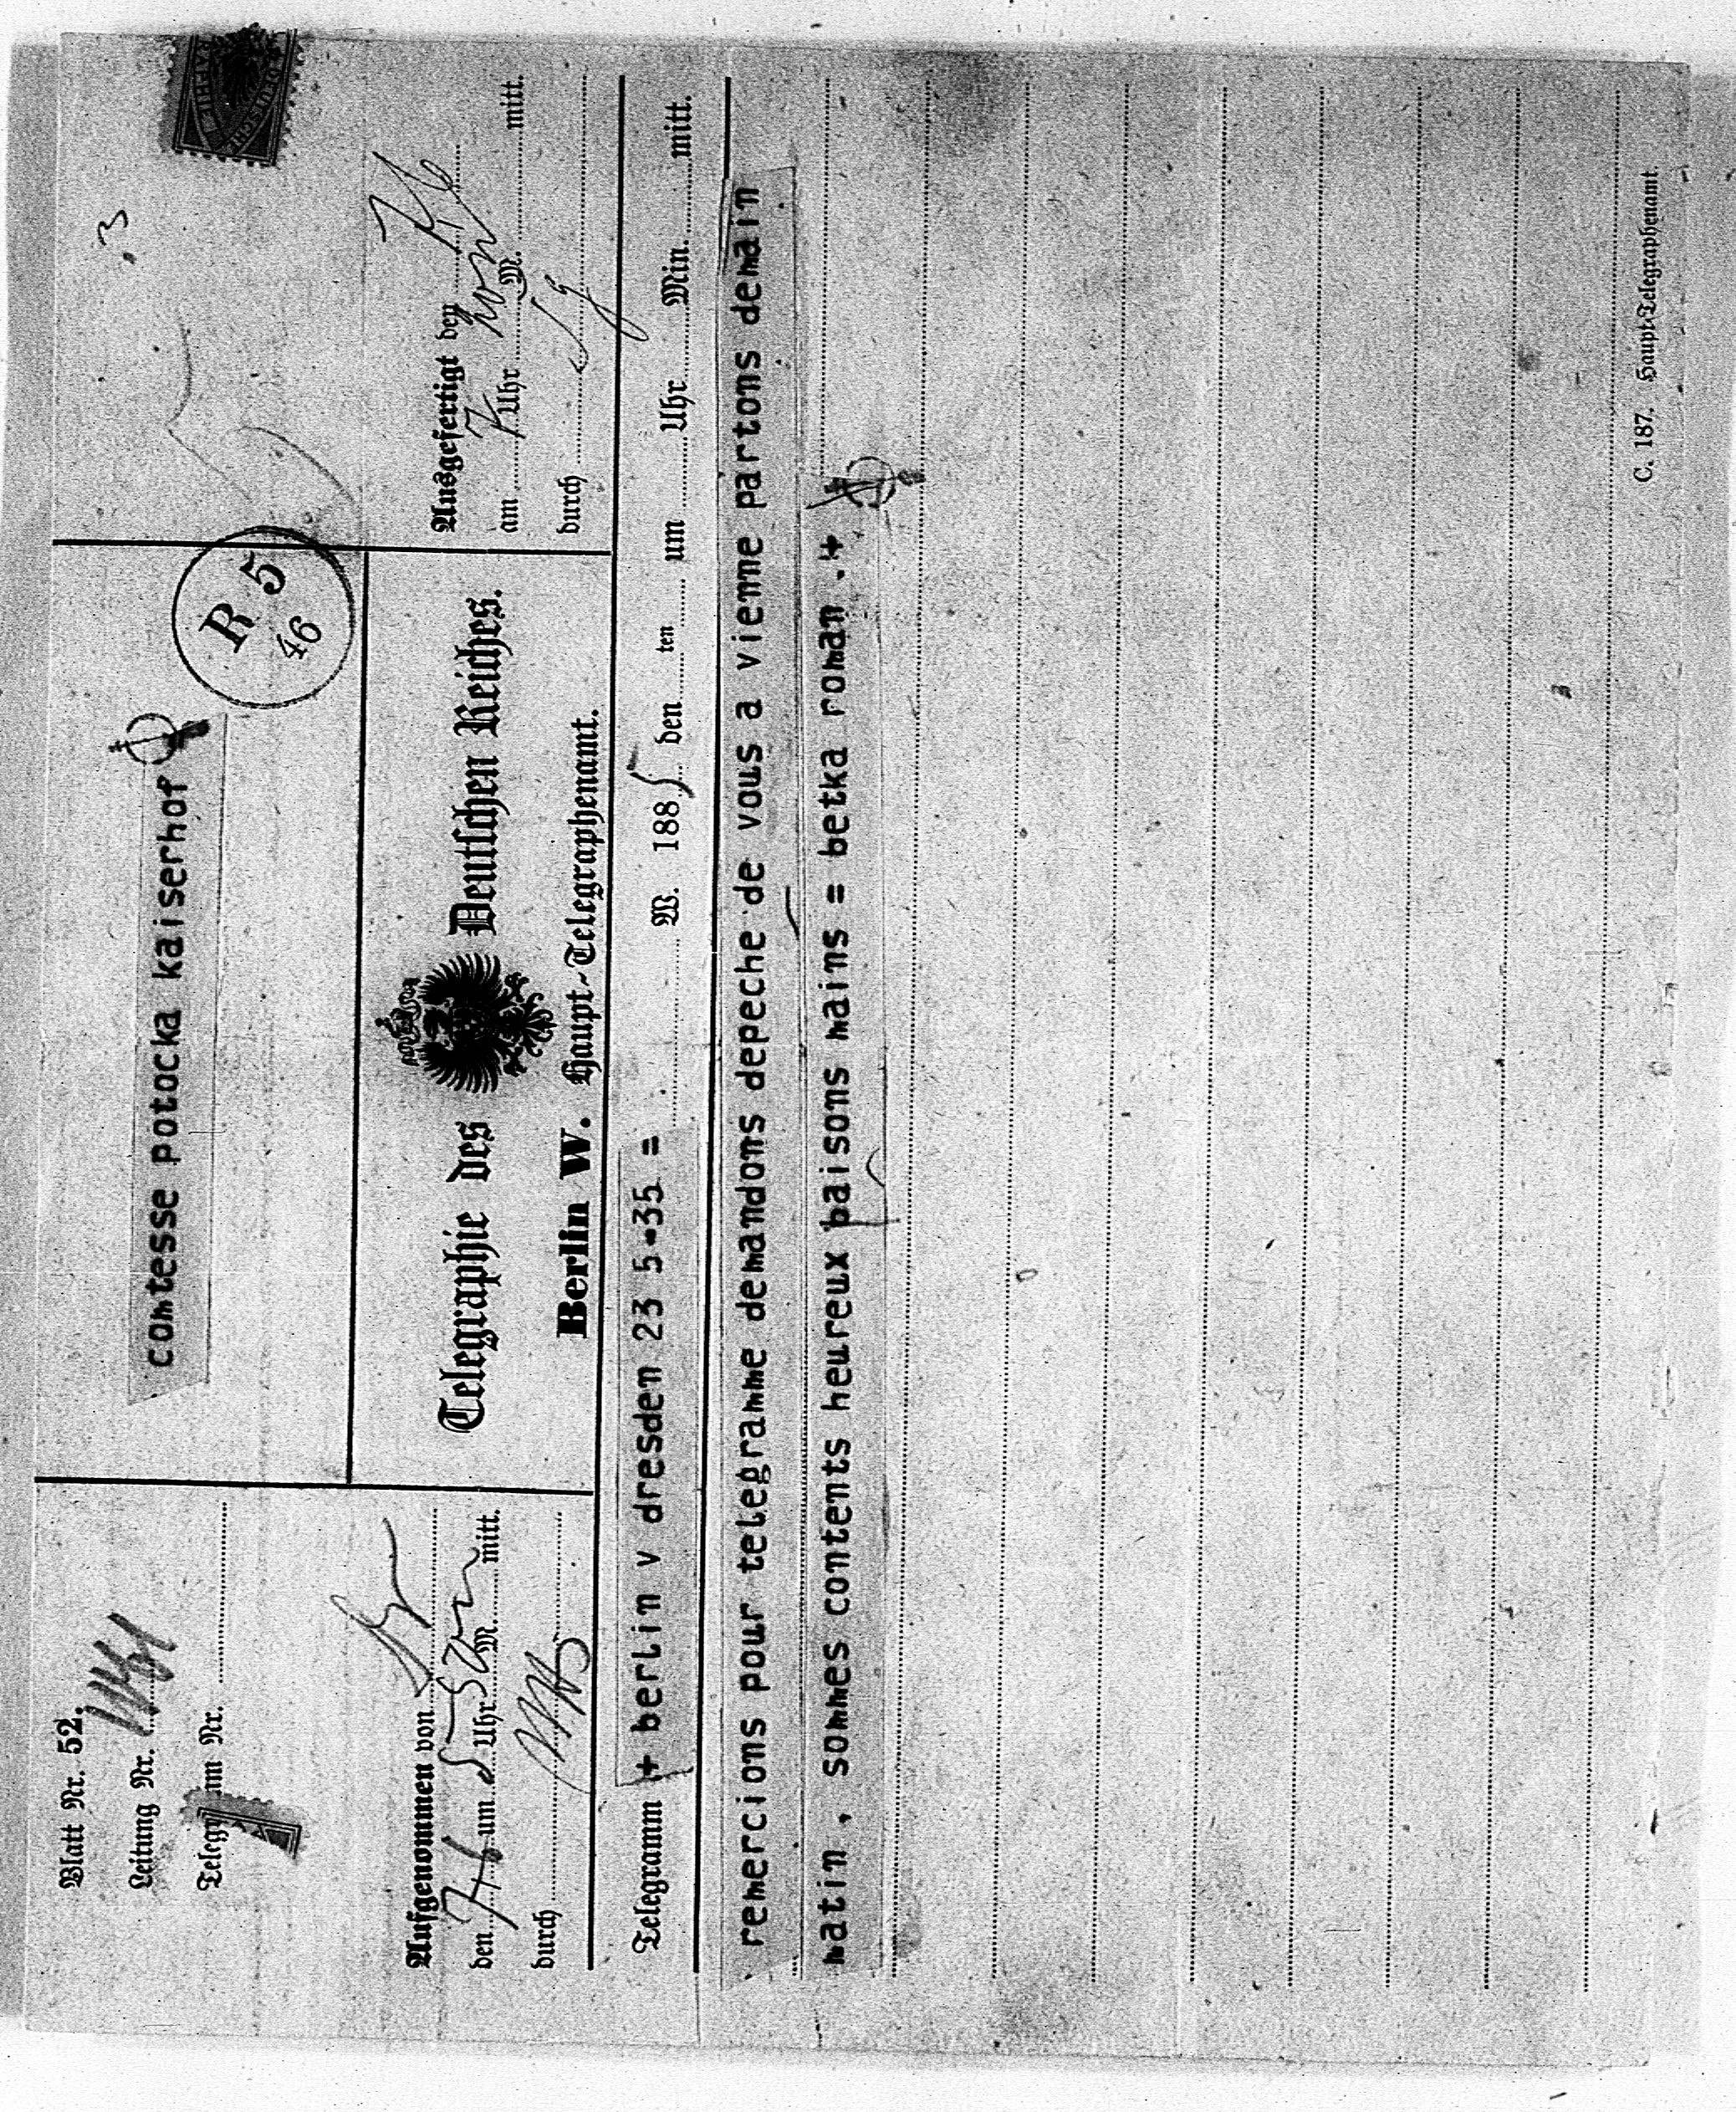 Blatt Nr. 52.
Leitung Nr.
Telegramm Nr.
comtesse potocka kaiserhof
R 5
46
3
DEUTSCHE
Aufgenommen von
den 7/6 um 5 Uhr 52 M. mitt.
durch
Telegraphie des Deutschen Reiches.
Berlin W. Haupt-Telegraphenamt.
Ausgefertigt den 7/6
am 7 Uhr M. mitt.
durch
Telegramm + berlin v dresden 23 5-35 = W. 1885 den ten um Uhr Min. mitt.
remercions pour telegramme demandons depeche de vous a vienne partons demain
matin , sommes contents heureux baisons mains = betka roman .+
C. 187. Haupt-Telegraphenamt.